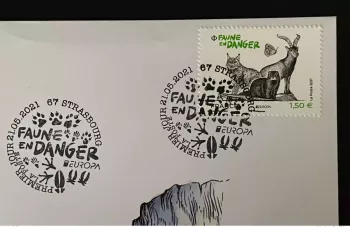 FAUNE
EN DANGER
1,50 €
67 STRASBOURG
21.05.2021
PREMIER JOUR
FAUNE
EN DANGER
EUROPA
67 STRASBOURG
21.05.2021
PREMIER JOUR
FAUNE
EN DANGER
EUROPA